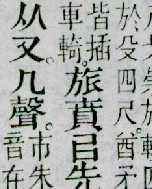 於殳四尺酋矛
皆插
車輢。旅賁㠯先
从又。几聲。市朱
音在